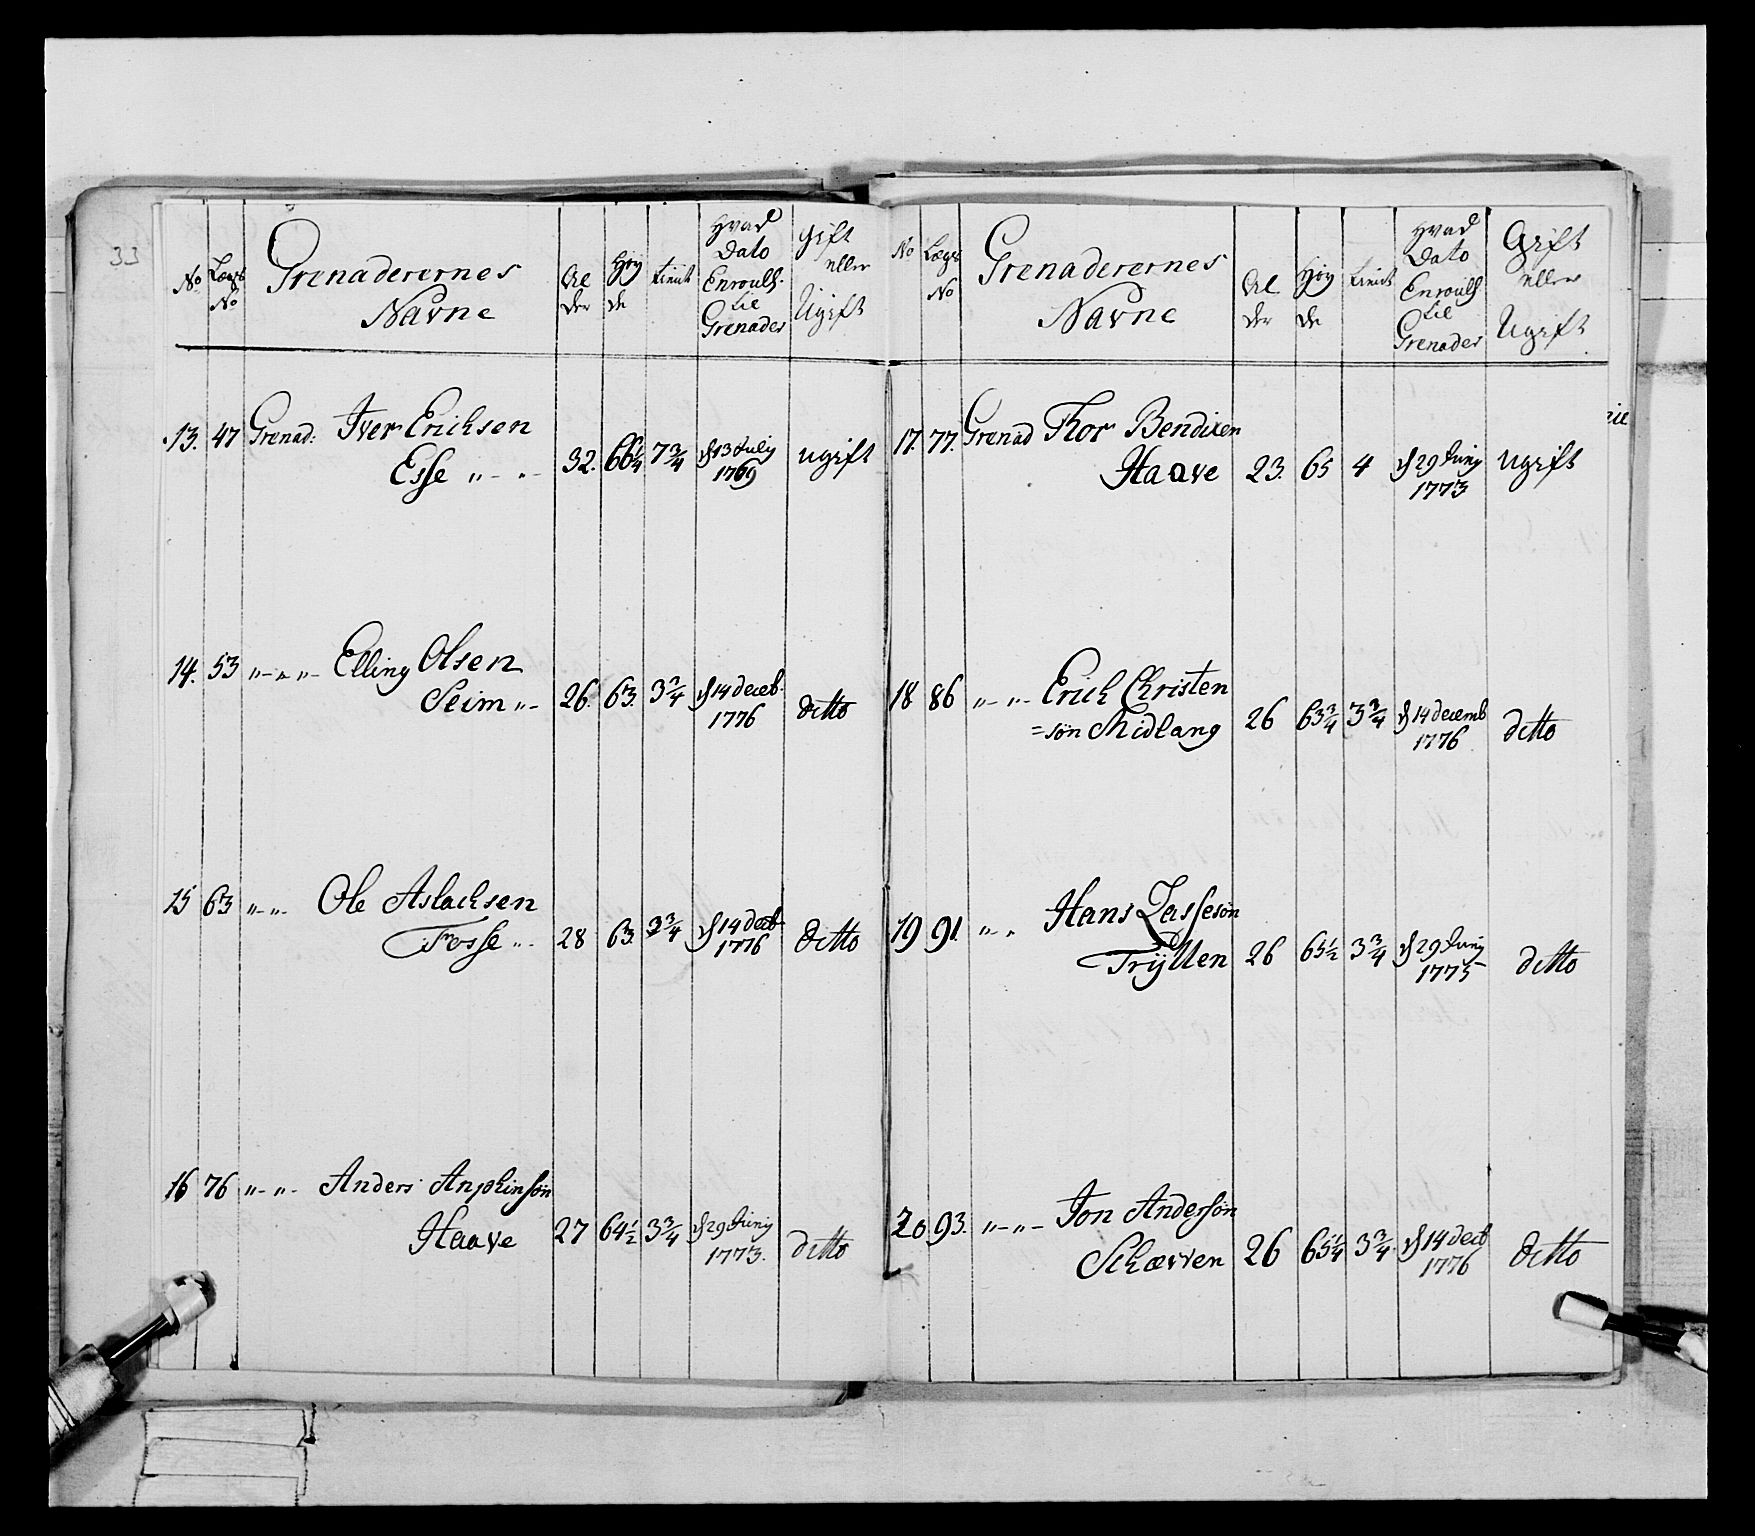 33
No Lægs No Grenaderernes Navne Alder Høyde tienist Hvad Dato Enroull. til Grenader Gift eller Ugift
13. 47 Grenad: Iver Erichsen
Esse „ - „ - 32. 66¼ 7¾ d 13 July 1769 ugift
14. 53 „ - „ „ - Elling Olsen
Seim „ - 26. 63. 3¾ d 14 deceb. 1776 ditto
15 63 „ - „ - Ole Aslachsen
Fosse „ - 28 63. 3¾ d 14 decb 1776 ditto
16 76 „ - „ - Anders Anphinsøn
Haave 27 64½ 3¾ d 29 Juny 1773. ditto
No Lægs No Grenaderernes Navne Alder Høyde tienist Hvad Dato Enroull. til Grenader Gift eller Ugift
17. 77. Grenad Thor Bendixen
Haave 23. 65 4 d 29 Juny 1773 ugift
18 86 „ - „ - Erich Christen
=søn Midlang 26 63¾ 3¾ d 14 decemb 1776 ditto
19 91. „ - „ Hans Lassesøn
Tryllen 26 65½ 3¾ d 29 Juny 1775 ditto
20. 93. „ - „ - Jon Andersøn
Schærven 26 65¼ 3¾. d 14 decb 1776 ditto